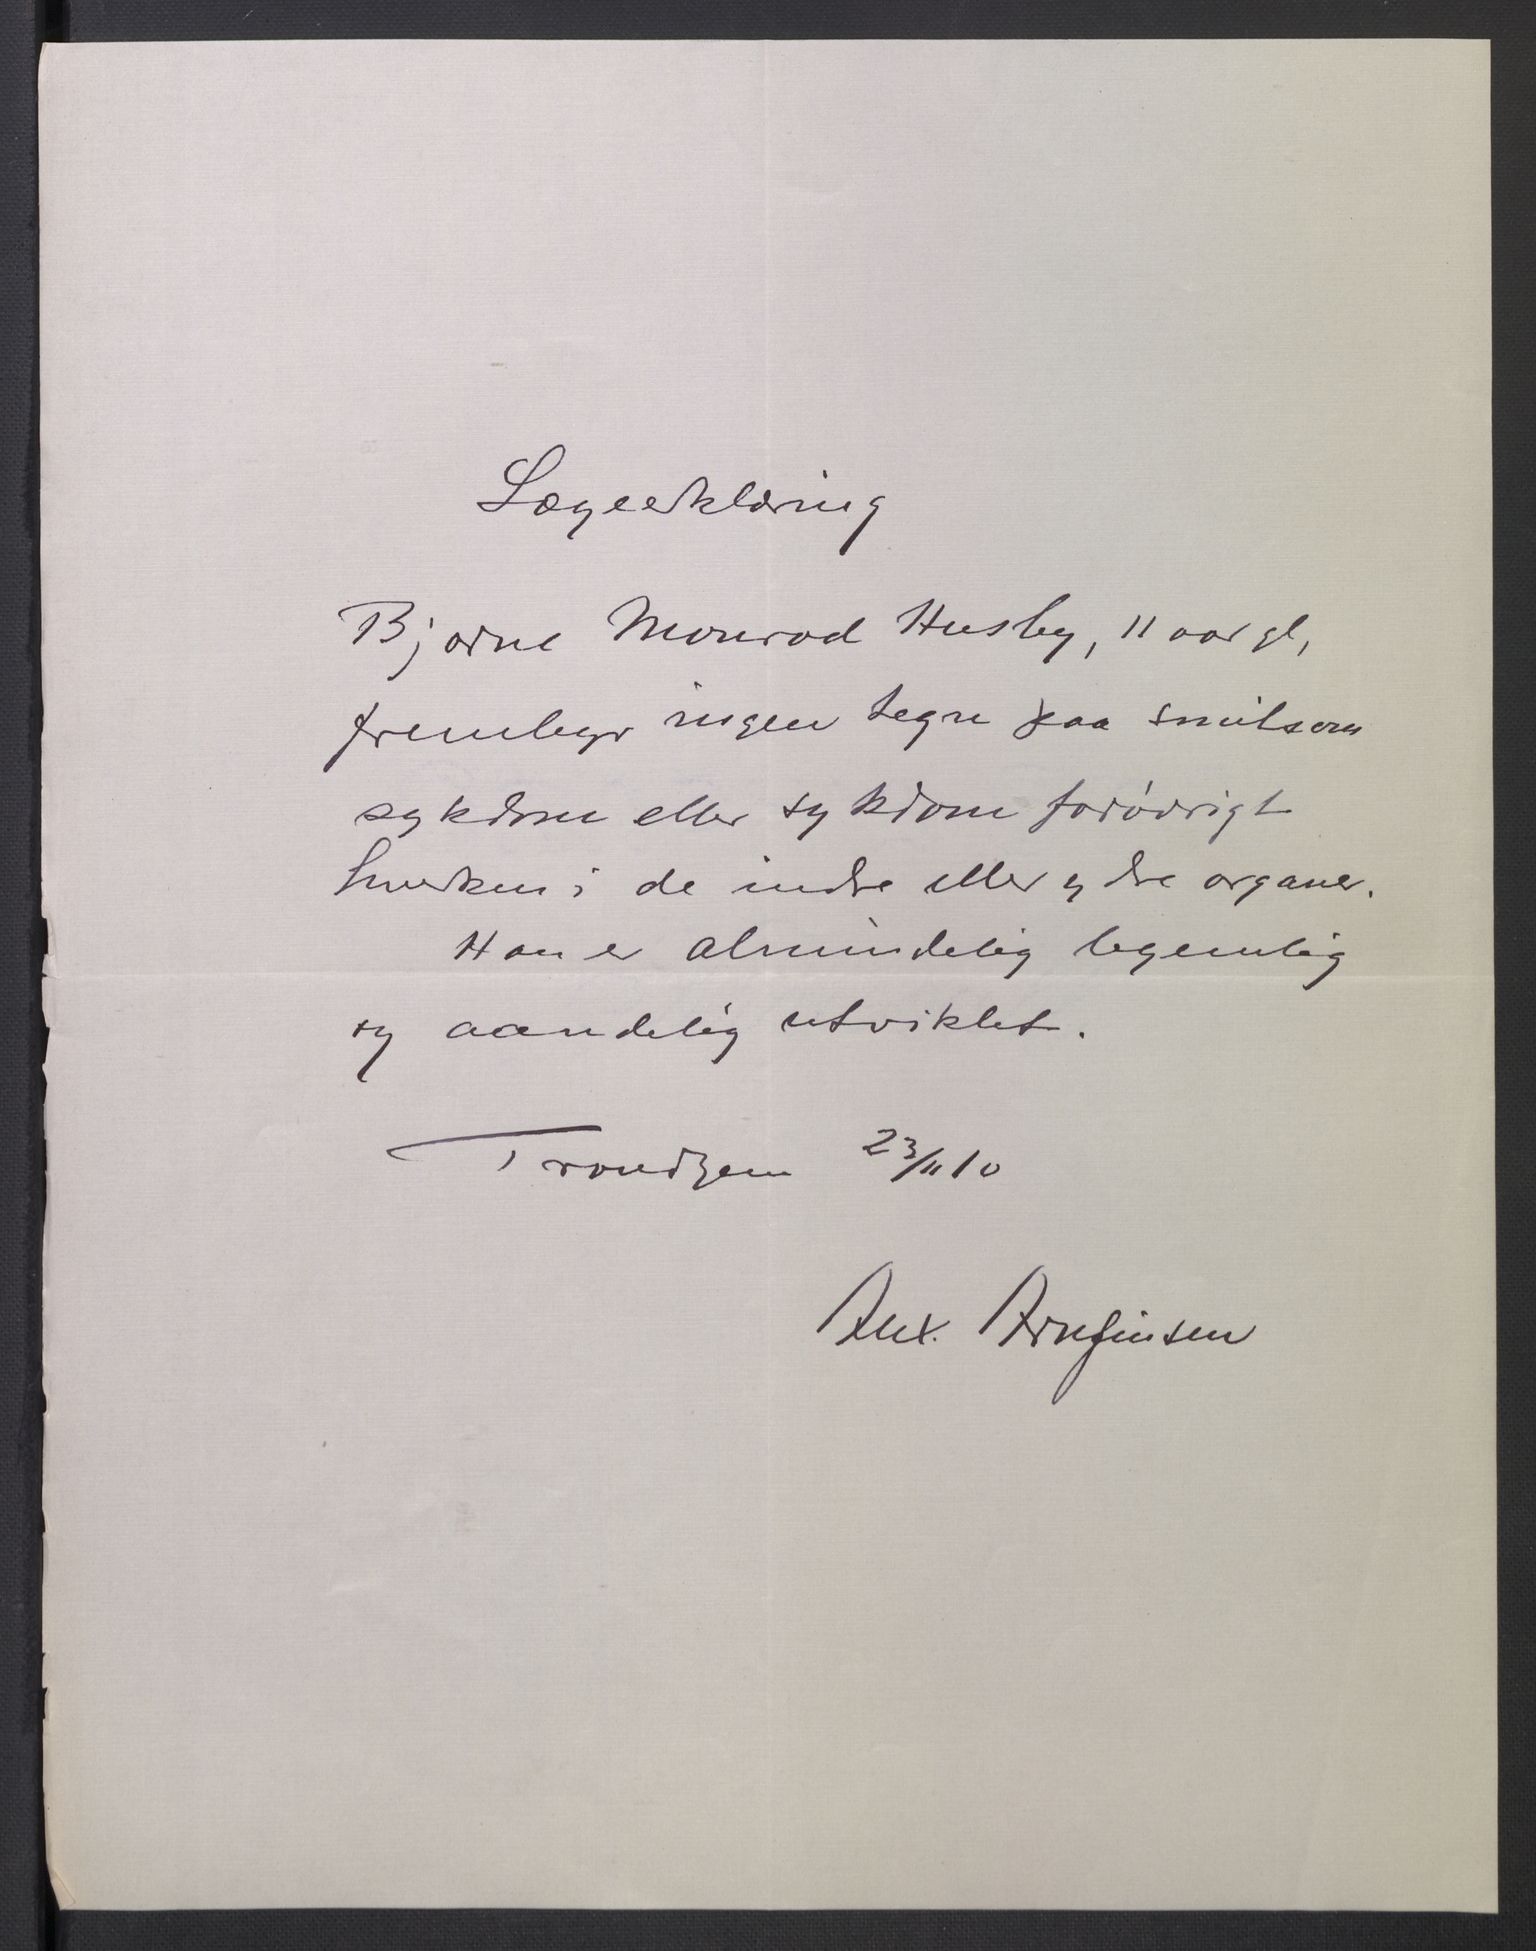 Lægeerklæring
Bjarne Monrad Husby, 11 aar gl,
frembyr ingen tegn paa smitsom
sykdom eller sykdom forøvrigt
hverken i de indre eller ydre organer.
Han er almindelig legemlig
og aandelig utviklet.
Trondhjem 23/11 10
Alex. Brinchmann